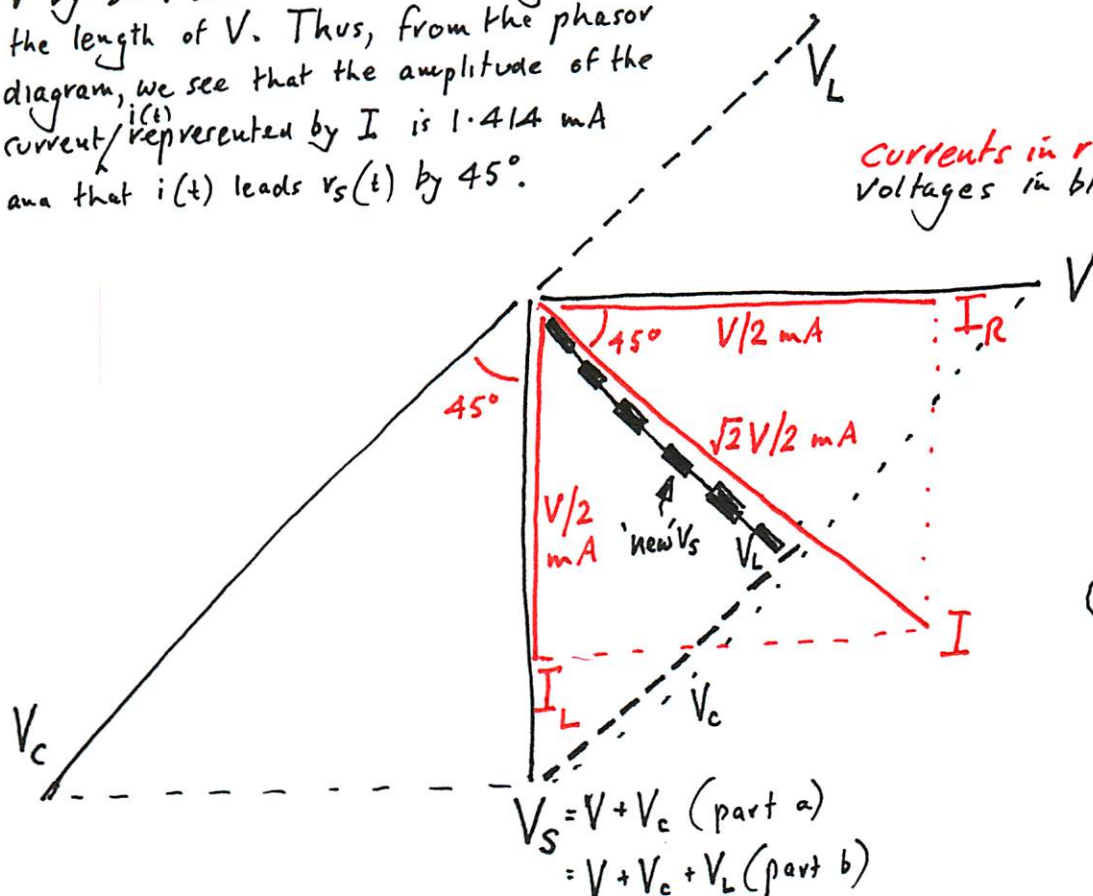 the length of V. Thus, from the phasor
diagram, we see that the amplitude of the
i(t)
current/represented by I is 1.414 mA
ana that i(t) leads vs(t) by 45°.
VL
currents in r
voltages in b
V
45°
V/2 mA
IR
45°
√2 V/2 mA
V/2
mA
'new' Vs
VL
I
IL
Vc
Vc
Vs = V + Vc (part a)
= V + Vc + VL (part b)